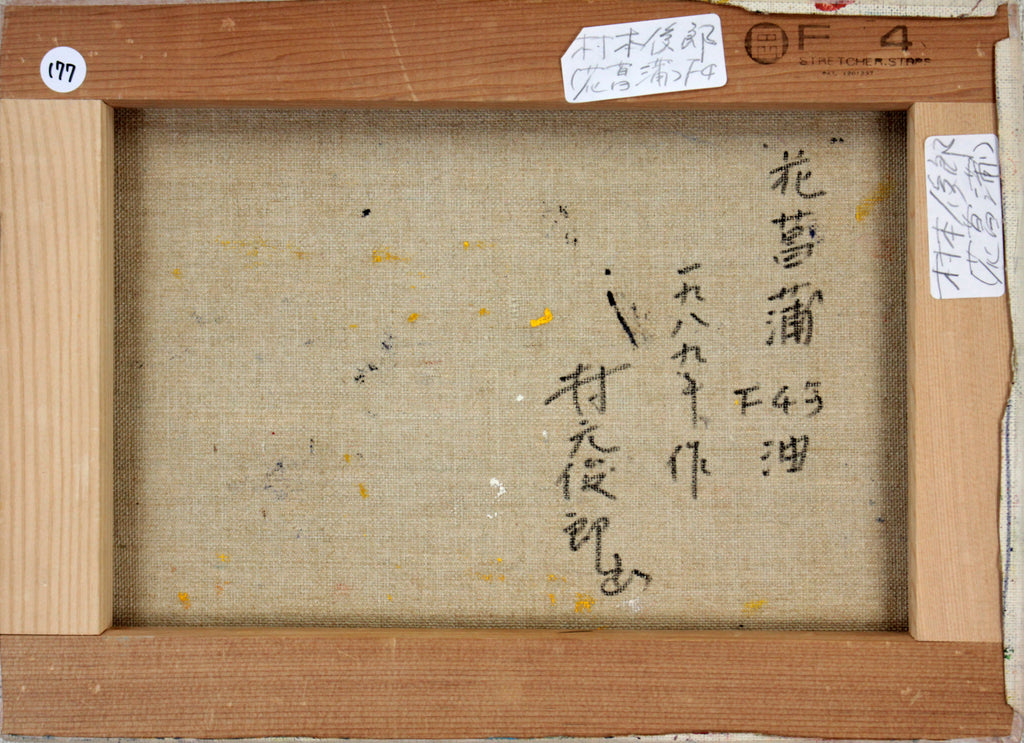 177
村本俊郎
(花菖蒲)F4
F 4
STRETCHER.STAPP
村本俊郎
(花菖蒲)
"花菖蒲"
F4号
油
一九八九年作
村元俊郎